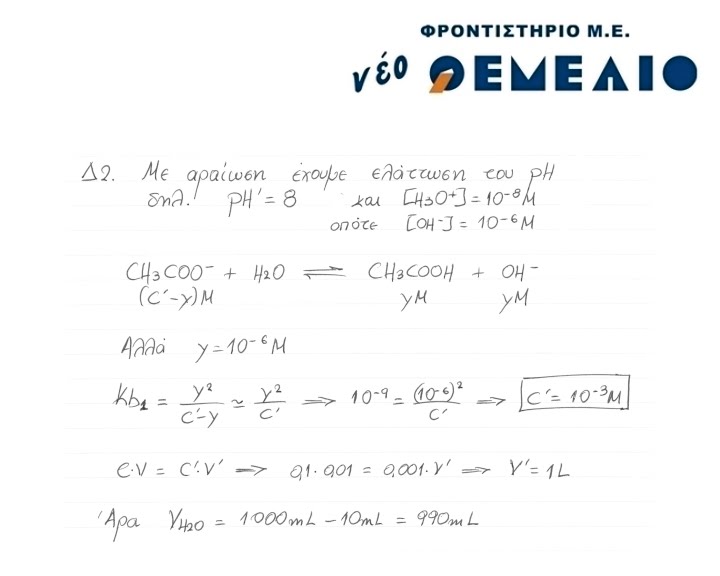 ΦΡΟΝΤΙΣΤΗΡΙΟ Μ.Ε.
νέο ΘΕΜΕΛΙΟ
Δ2. Με αραίωση έχουμε ελάττωση του pH
δηλ. pH' = 8 και [H3O+] = 10⁻⁸M
οπότε [OH⁻] = 10⁻⁶M
CH3COO⁻ + H2O ⇌ CH3COOH + OH⁻
(C'-y)M yM yM
Αλλά y = 10⁻⁶M
Kb1 = y²/(C'-y) ≃ y²/C' ⟹ 10⁻⁹ = (10⁻⁶)²/C' ⟹ C' = 10⁻³M
C·V = C'·V' ⟹ 0,1·0,01 = 0,001·V' ⟹ V' = 1L
Άρα VH2O = 1000mL - 10mL = 990mL